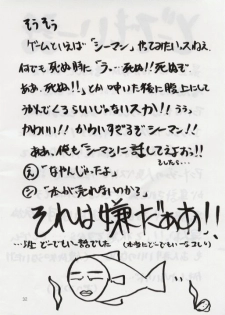 そうそう
ゲームといえば「シーマン」やってみたいスねぇ
何でも死ぬ時に「う、…死ぬ!!死ぬぞ
ああ、死ぬ!!」とか呻いた後に腹上にして
うかんでくるらしいじゃないスか!!うぅ、
かわいい!!かわいすぎるぞシーマン!!
ああ、俺も「シーマン」に話してえよぉっ!!
そしたら…
「なやんじゃったよ」
「本が売れないのかる」
それは嫌だああ!!
…注 どーでもいー話でした (本当にどーでもいーなコレ)